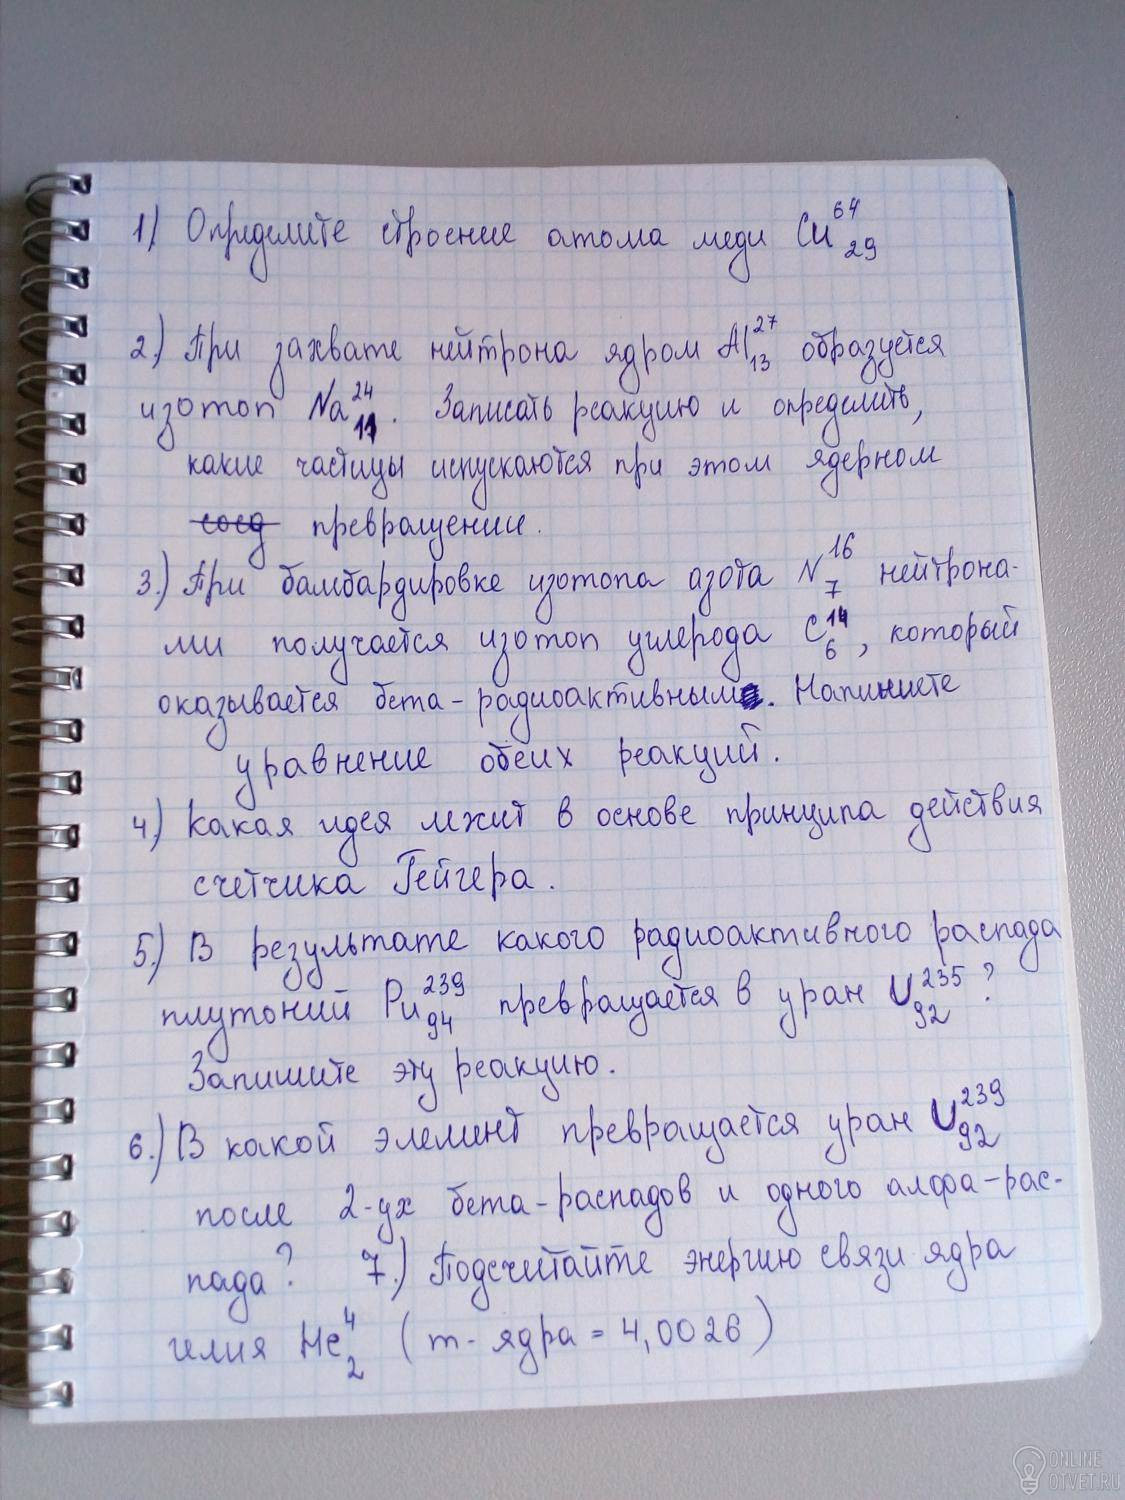 1) Определите строение атома меди Cu 64 29
2.) При захвате нейтрона ядром Al 27 13 образуется
изотоп Na 24 11. Записать реакцию и определить,
какие частицы испускаются при этом ядерном
соед превращении.
3.) При бамбардировке изотопа азота N 16 7 нейтрона-
ми получается изотоп углерода C 14 6, который
оказывается бета-радиоактивным. Напишите
уравнение обеих реакций.
4) Какая идея лежит в основе принципа действия
счетчика Гейгера.
5.) В результате какого радиоактивного распада
плутоний Pu 239 94 превращается в уран U 235 92?
Запишите эту реакцию.
6.) В какой элемент превращается уран U 239 92
после 2-ух бета-распадов и одного алфа-рас-
пада? 7.) Подсчитайте энергию связи ядра
гелия He 4 2 (m-ядра = 4,0026)
ONLINE
OTVET.RU